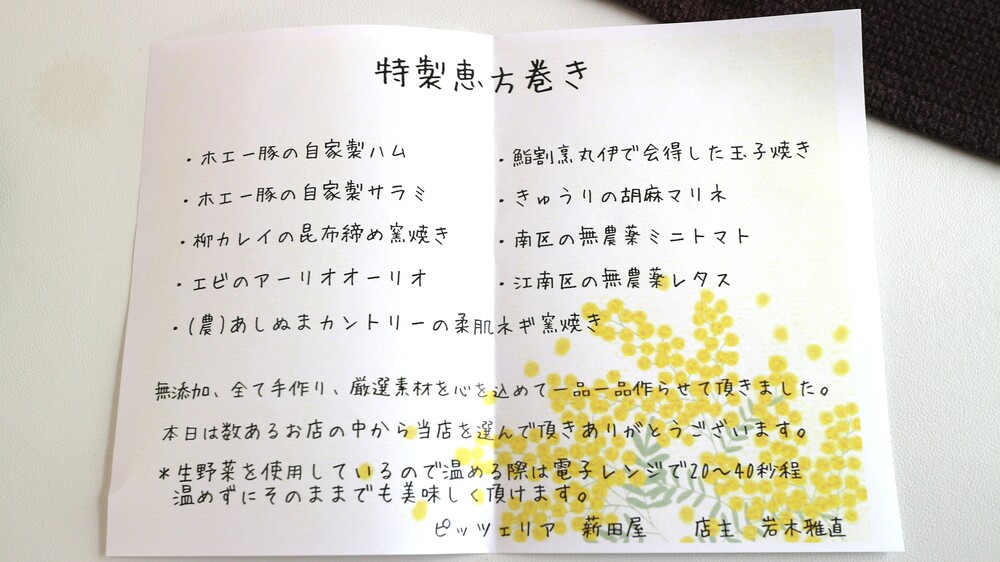 特製恵方巻き
・ホエー豚の自家製ハム
・ホエー豚の自家製サラミ
・柳カレイの昆布締め窯焼き
・エビのアーリオオーリオ
・(農)あしぬまカントリーの柔肌ネギ窯焼き
・鮨割烹丸伊で会得した玉子焼き
・きゅうりの胡麻マリネ
・南区の無農薬ミニトマト
・江南区の無農薬レタス
無添加、全て手作り、厳選素材を心を込めて一品一品作らせて頂きました。
本日は数あるお店の中から当店を選んで頂きありがとうございます。
*生野菜を使用しているので温める際は電子レンジで20〜40秒程
温めずにそのままでも美味しく頂けます。
ピッツェリア 薪田屋 店主 岩木雅直